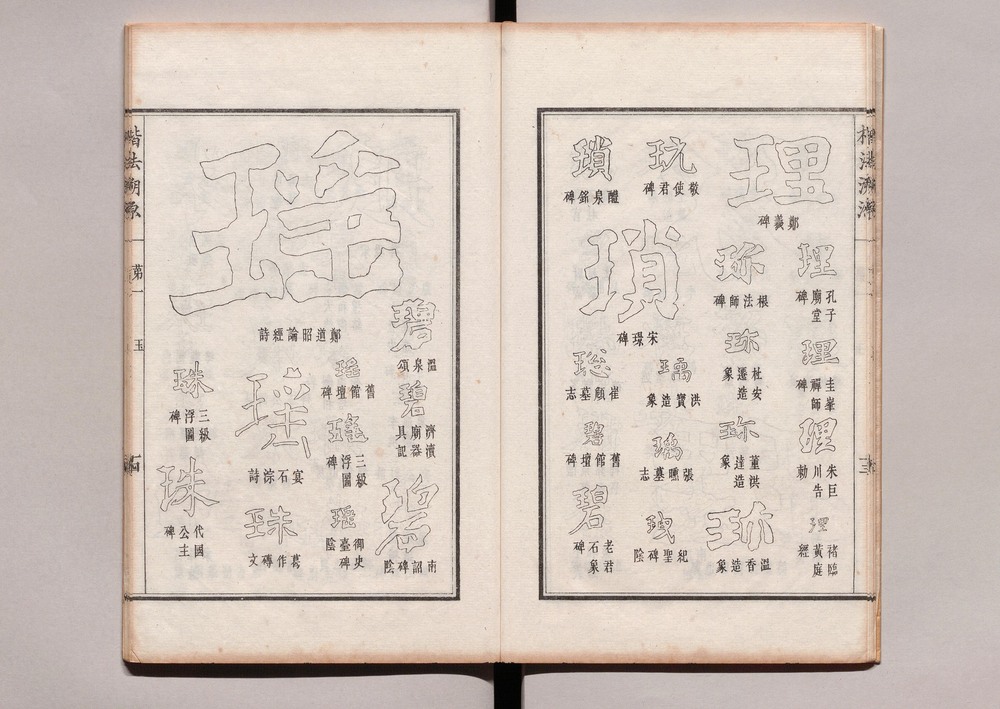 理
鄭羲碑
理
孔子廟堂碑
理
圭峯禪師碑
理
朱巨川告勅
理
褚臨黃庭經
玩
敬使君碑
珎
根法師碑
珎
杜遷安造象
珎
董洪達造象
珎
溫香造象
瑣
醴泉銘碑
瑣
宋璟碑
洪寶造象
璃
張曛墓志
紀聖碑陰
崔頠墓志
碧
舊館壇碑
碧
老君石象碑
楷法溯源
楷法溯源
第一
玉
碧
溫泉頌
碧
濟瀆廟器具記
碧
南詔碑陰
瑶
鄭道昭論經詩
瑶
舊館壇碑
瑤
三級浮圖碑
瑶
御史臺碑陰
瑤
宴石淙詩
珠
葛作磚文
珠
三級浮圖碑
珠
代國公主碑